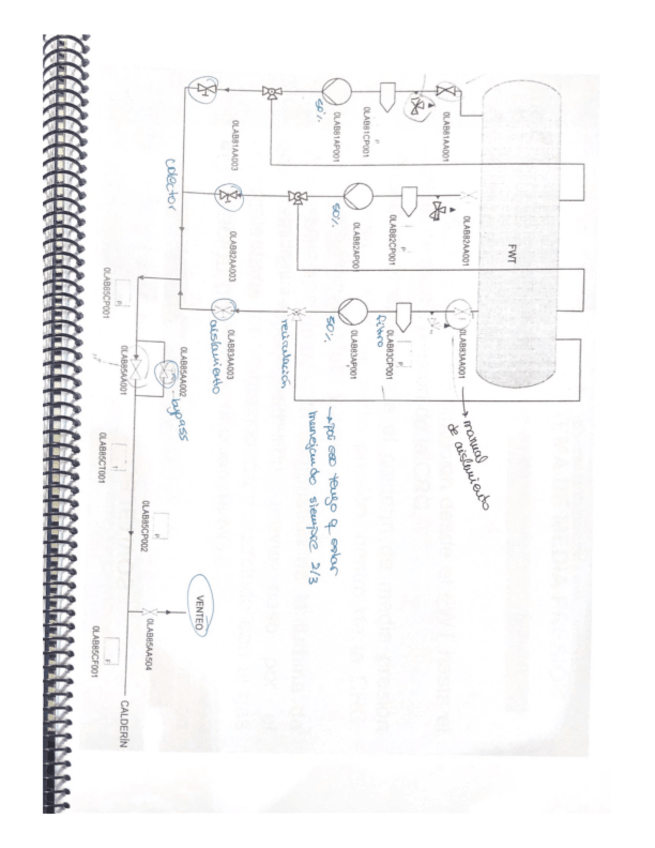 FWT
0LAB81AA001
0LAB81CP001
0LAB81AP001
50%
0LAB81AA003
0LAB82AA001
0LAB82CP001
P
0LAB82AP001
50%
0LAB82AA003
colector
0LAB83AA001
→ manual
de aislamiento
0LAB83CP001
P
filtro
0LAB83AP001
50%
recirculación
0LAB83AA003
aislamiento
→ por eso tengo q estar
manejando siempre 2/3
0LAB85CP001
P
0LAB85AA002
bypass
0LAB85AA001
0LAB85CT001
T
0LAB85CP002
P
VENTEO
0LAB85AA504
0LAB85CF001
F
CALDERÍN